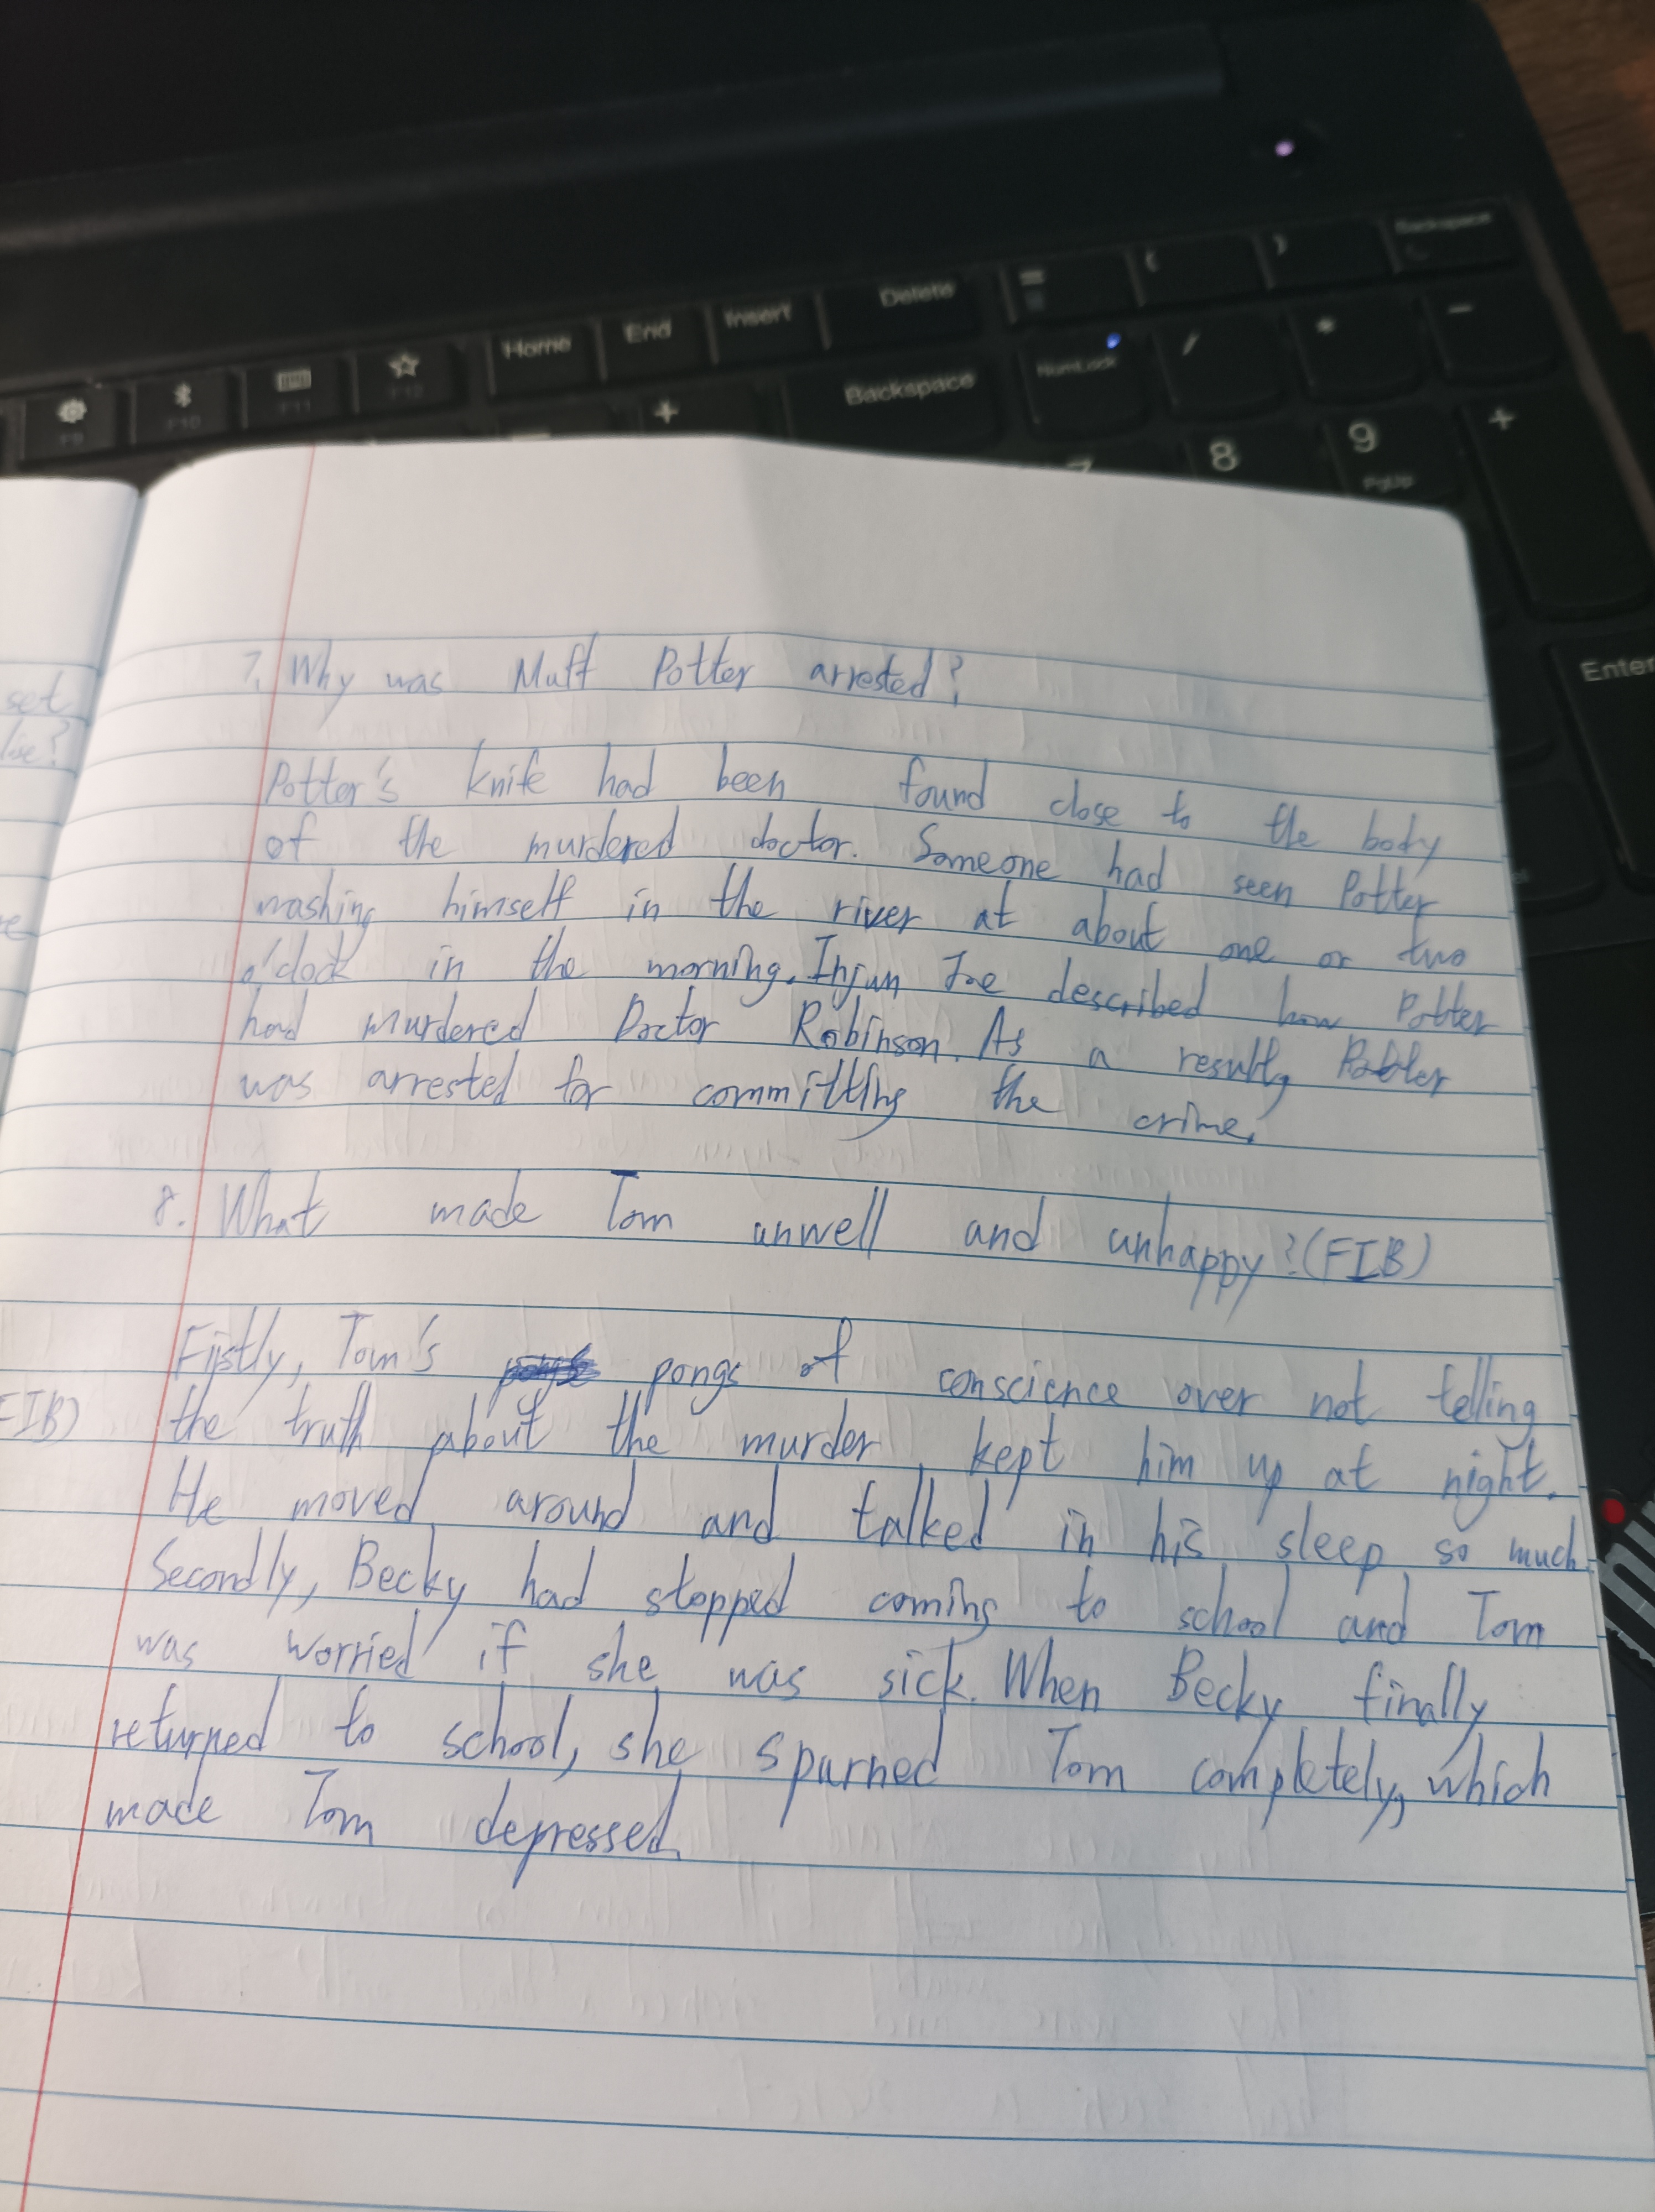 F9
F10
F11
F12
Home
End
Insert
Delete
=
(
)
Backspace
+
Backspace
NumLock
/
*
-
7
8
9
PgUp
+
Enter
set
7. Why was Muff Potter arrested?
Potter's knife had been found close to the body
of the murdered doctor. Someone had seen Potter
washing himself in the river at about one or two
o'clock in the morning. Injun Joe described how Potter
had murdered Doctor Robinson. As a result, Potter
was arrested for committing the crime.
8. What made Tom unwell and unhappy? (FIB)
Firstly, Tom's pongs of conscience over not telling
FIB)
the truth about the murder kept him up at night.
He moved around and talked in his sleep so much.
Secondly, Becky had stopped coming to school and Tom
was worried if she was sick. When Becky finally
returned to school, she spurned Tom completely, which
made Tom depressed.